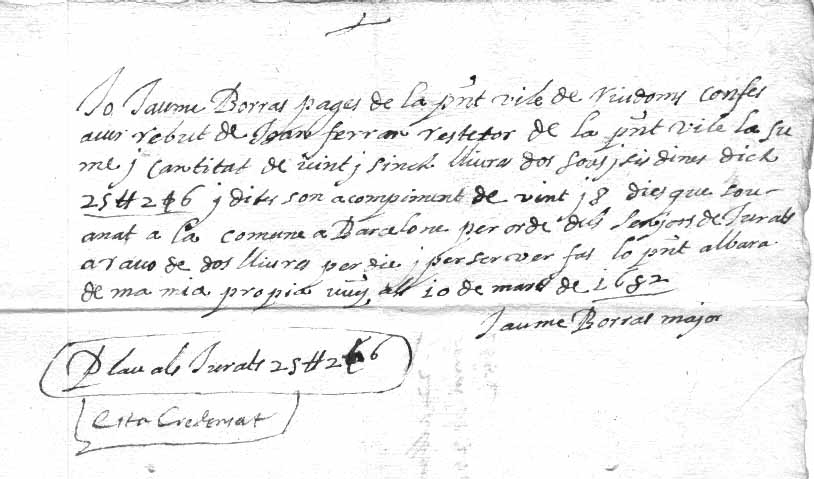 Jo Jaume Borras pages de la pnt vile de Riudoms confes
aver rebut de Joan ferran restetor de la pnt vile la su
me j cantitat de vint j sinch lliures dos sous j sis dines dich
25 ll 2 ß 6 j dites son a compiment de vint j 8 dies que sou
anat a la comune a Barcelone per orde dels senjors de Jurats
a rauo de dos lliures per die j per ser ver fas lo pnt albara
de ma mia propia vuy als 10 de mars de 1682
Jaume Borras major
P lau als Jurats 25 ll 2 ß 6
Esta Credensat